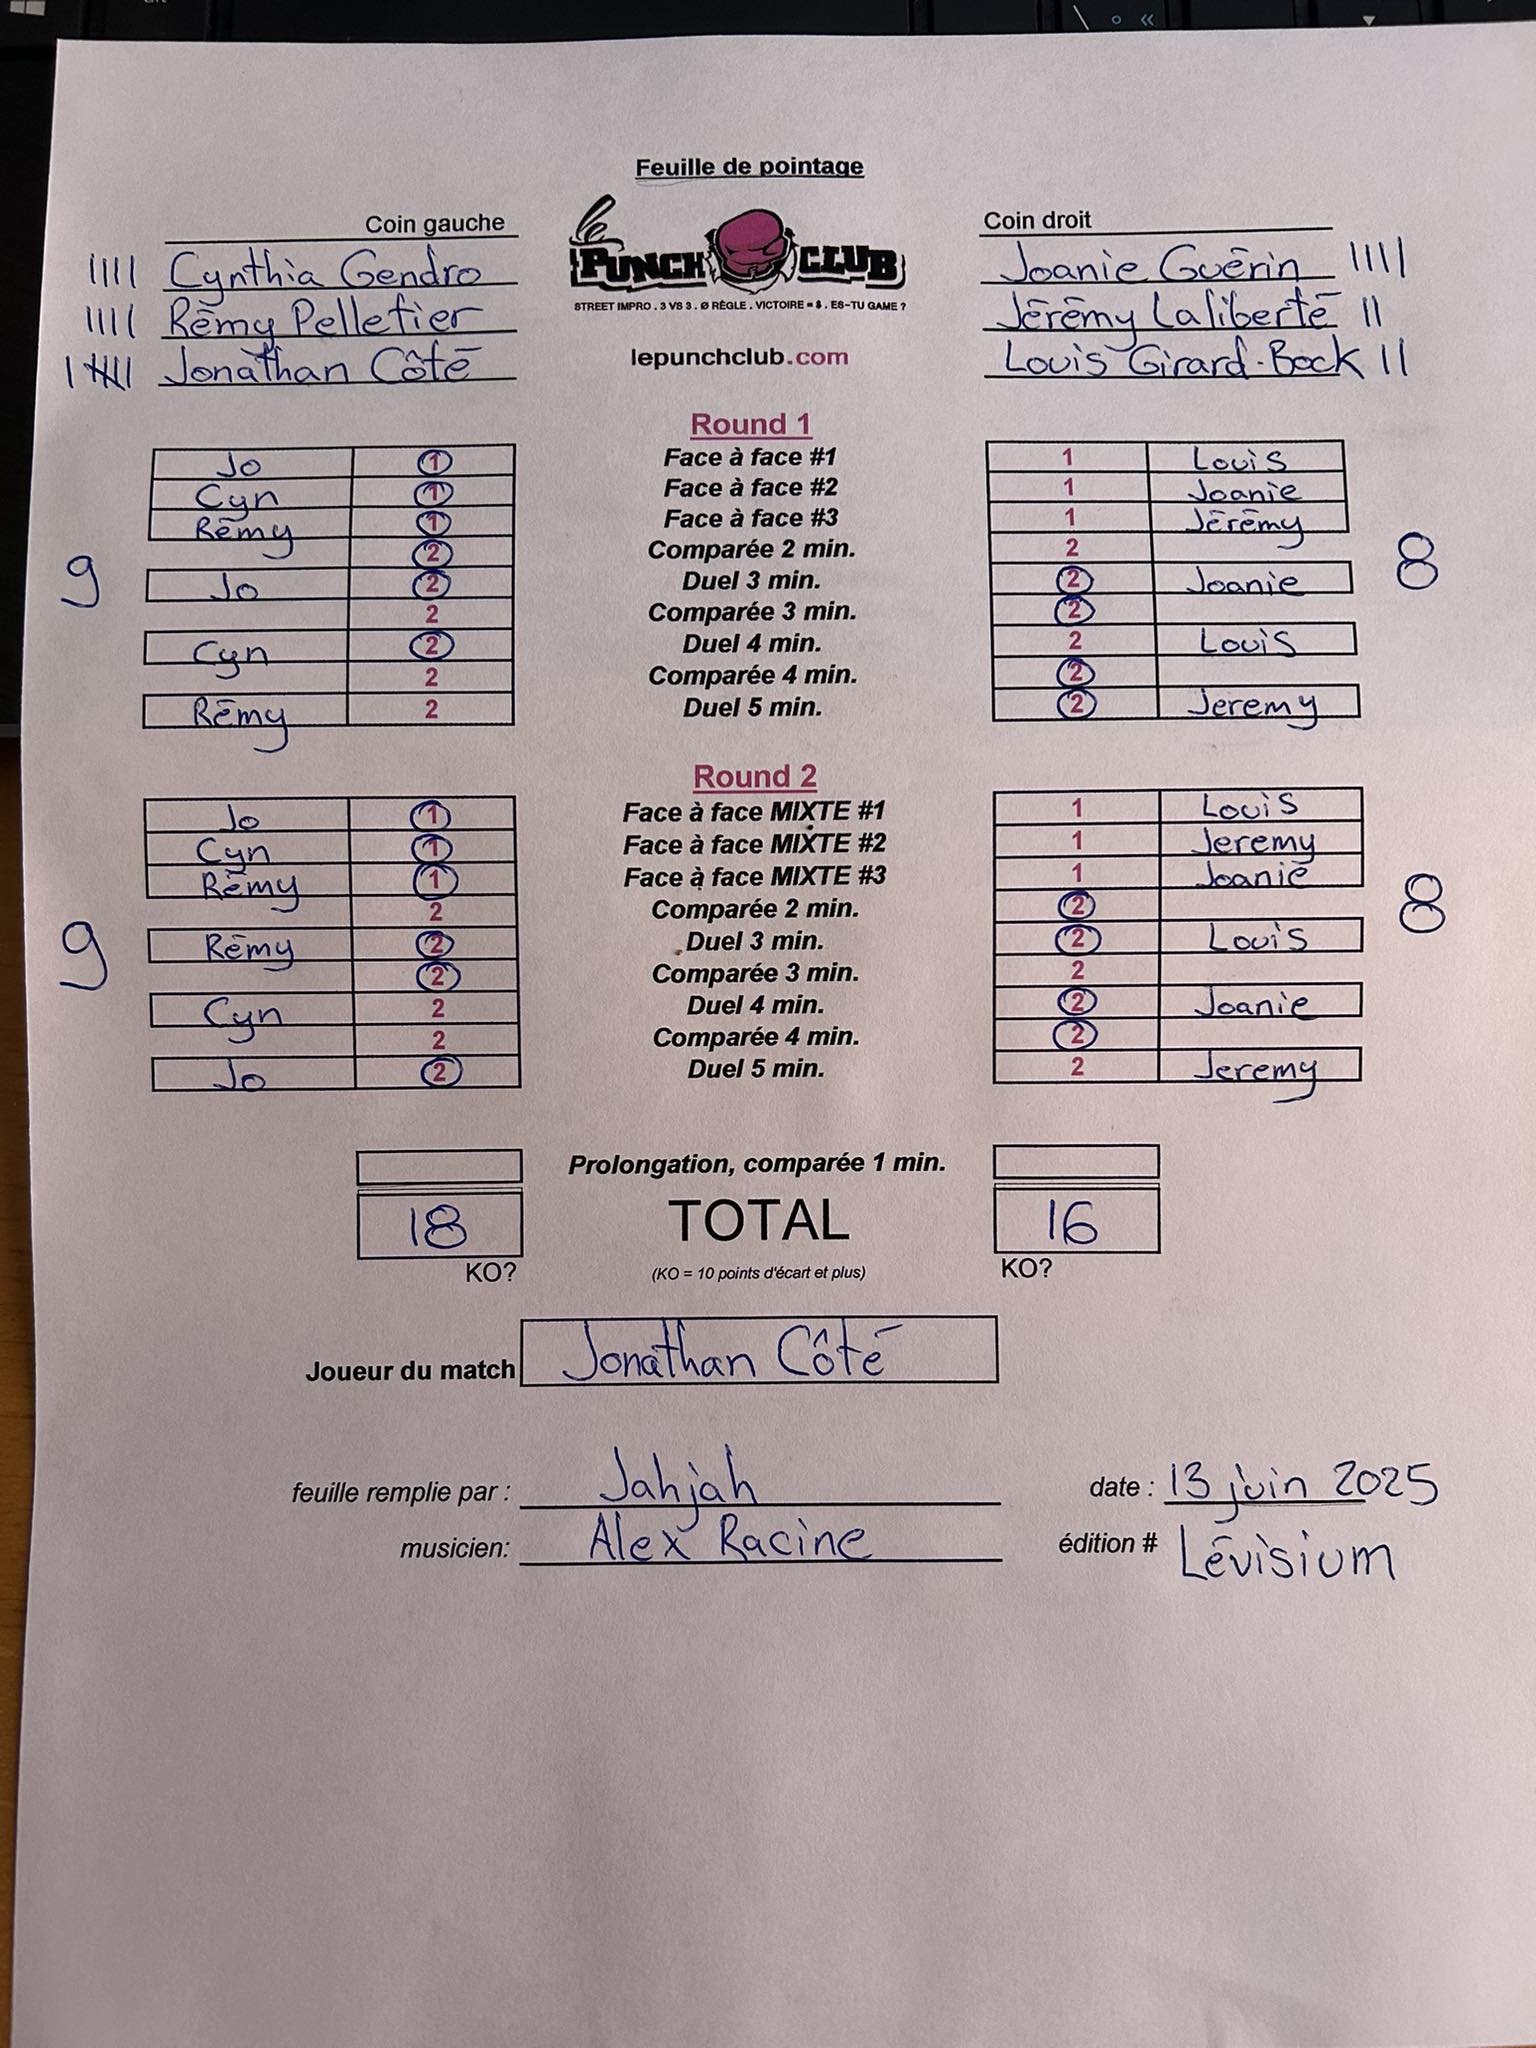 Feuille de pointage
Coin gauche
Coin droit
le PUNCH CLUB
STREET IMPRO . 3 VS 3 . Ø RÈGLE . VICTOIRE = $ . ES-TU GAME ?
lepunchclub.com
Cynthia Gendro
Joanie Guérin
Rémy Pelletier
Jérémy Laliberté
Jonathan Côté
Louis Girard-Bock
Round 1
Jo 1 Face à face #1 1 Louis
Cyn 1 Face à face #2 1 Joanie
Rémy 1 Face à face #3 1 Jérémy
2 Comparée 2 min. 2
9 Jo 2 Duel 3 min. 2 Joanie 8
2 Comparée 3 min. 2
Cyn 2 Duel 4 min. 2 Louis
2 Comparée 4 min. 2
Rémy 2 Duel 5 min. 2 Jeremy
Round 2
Jo 1 Face à face MIXTE #1 1 Louis
Cyn 1 Face à face MIXTE #2 1 Jeremy
Rémy 1 Face à face MIXTE #3 1 Joanie
2 Comparée 2 min. 2
9 Rémy 2 Duel 3 min. 2 Louis 8
2 Comparée 3 min. 2
Cyn 2 Duel 4 min. 2 Joanie
2 Comparée 4 min. 2
Jo 2 Duel 5 min. 2 Jeremy
Prolongation, comparée 1 min.
18 TOTAL 16
KO? (KO = 10 points d'écart et plus) KO?
Joueur du match Jonathan Côté
feuille remplie par : Jahjah date : 13 juin 2025
musicien: Alex Racine édition # Lévisium